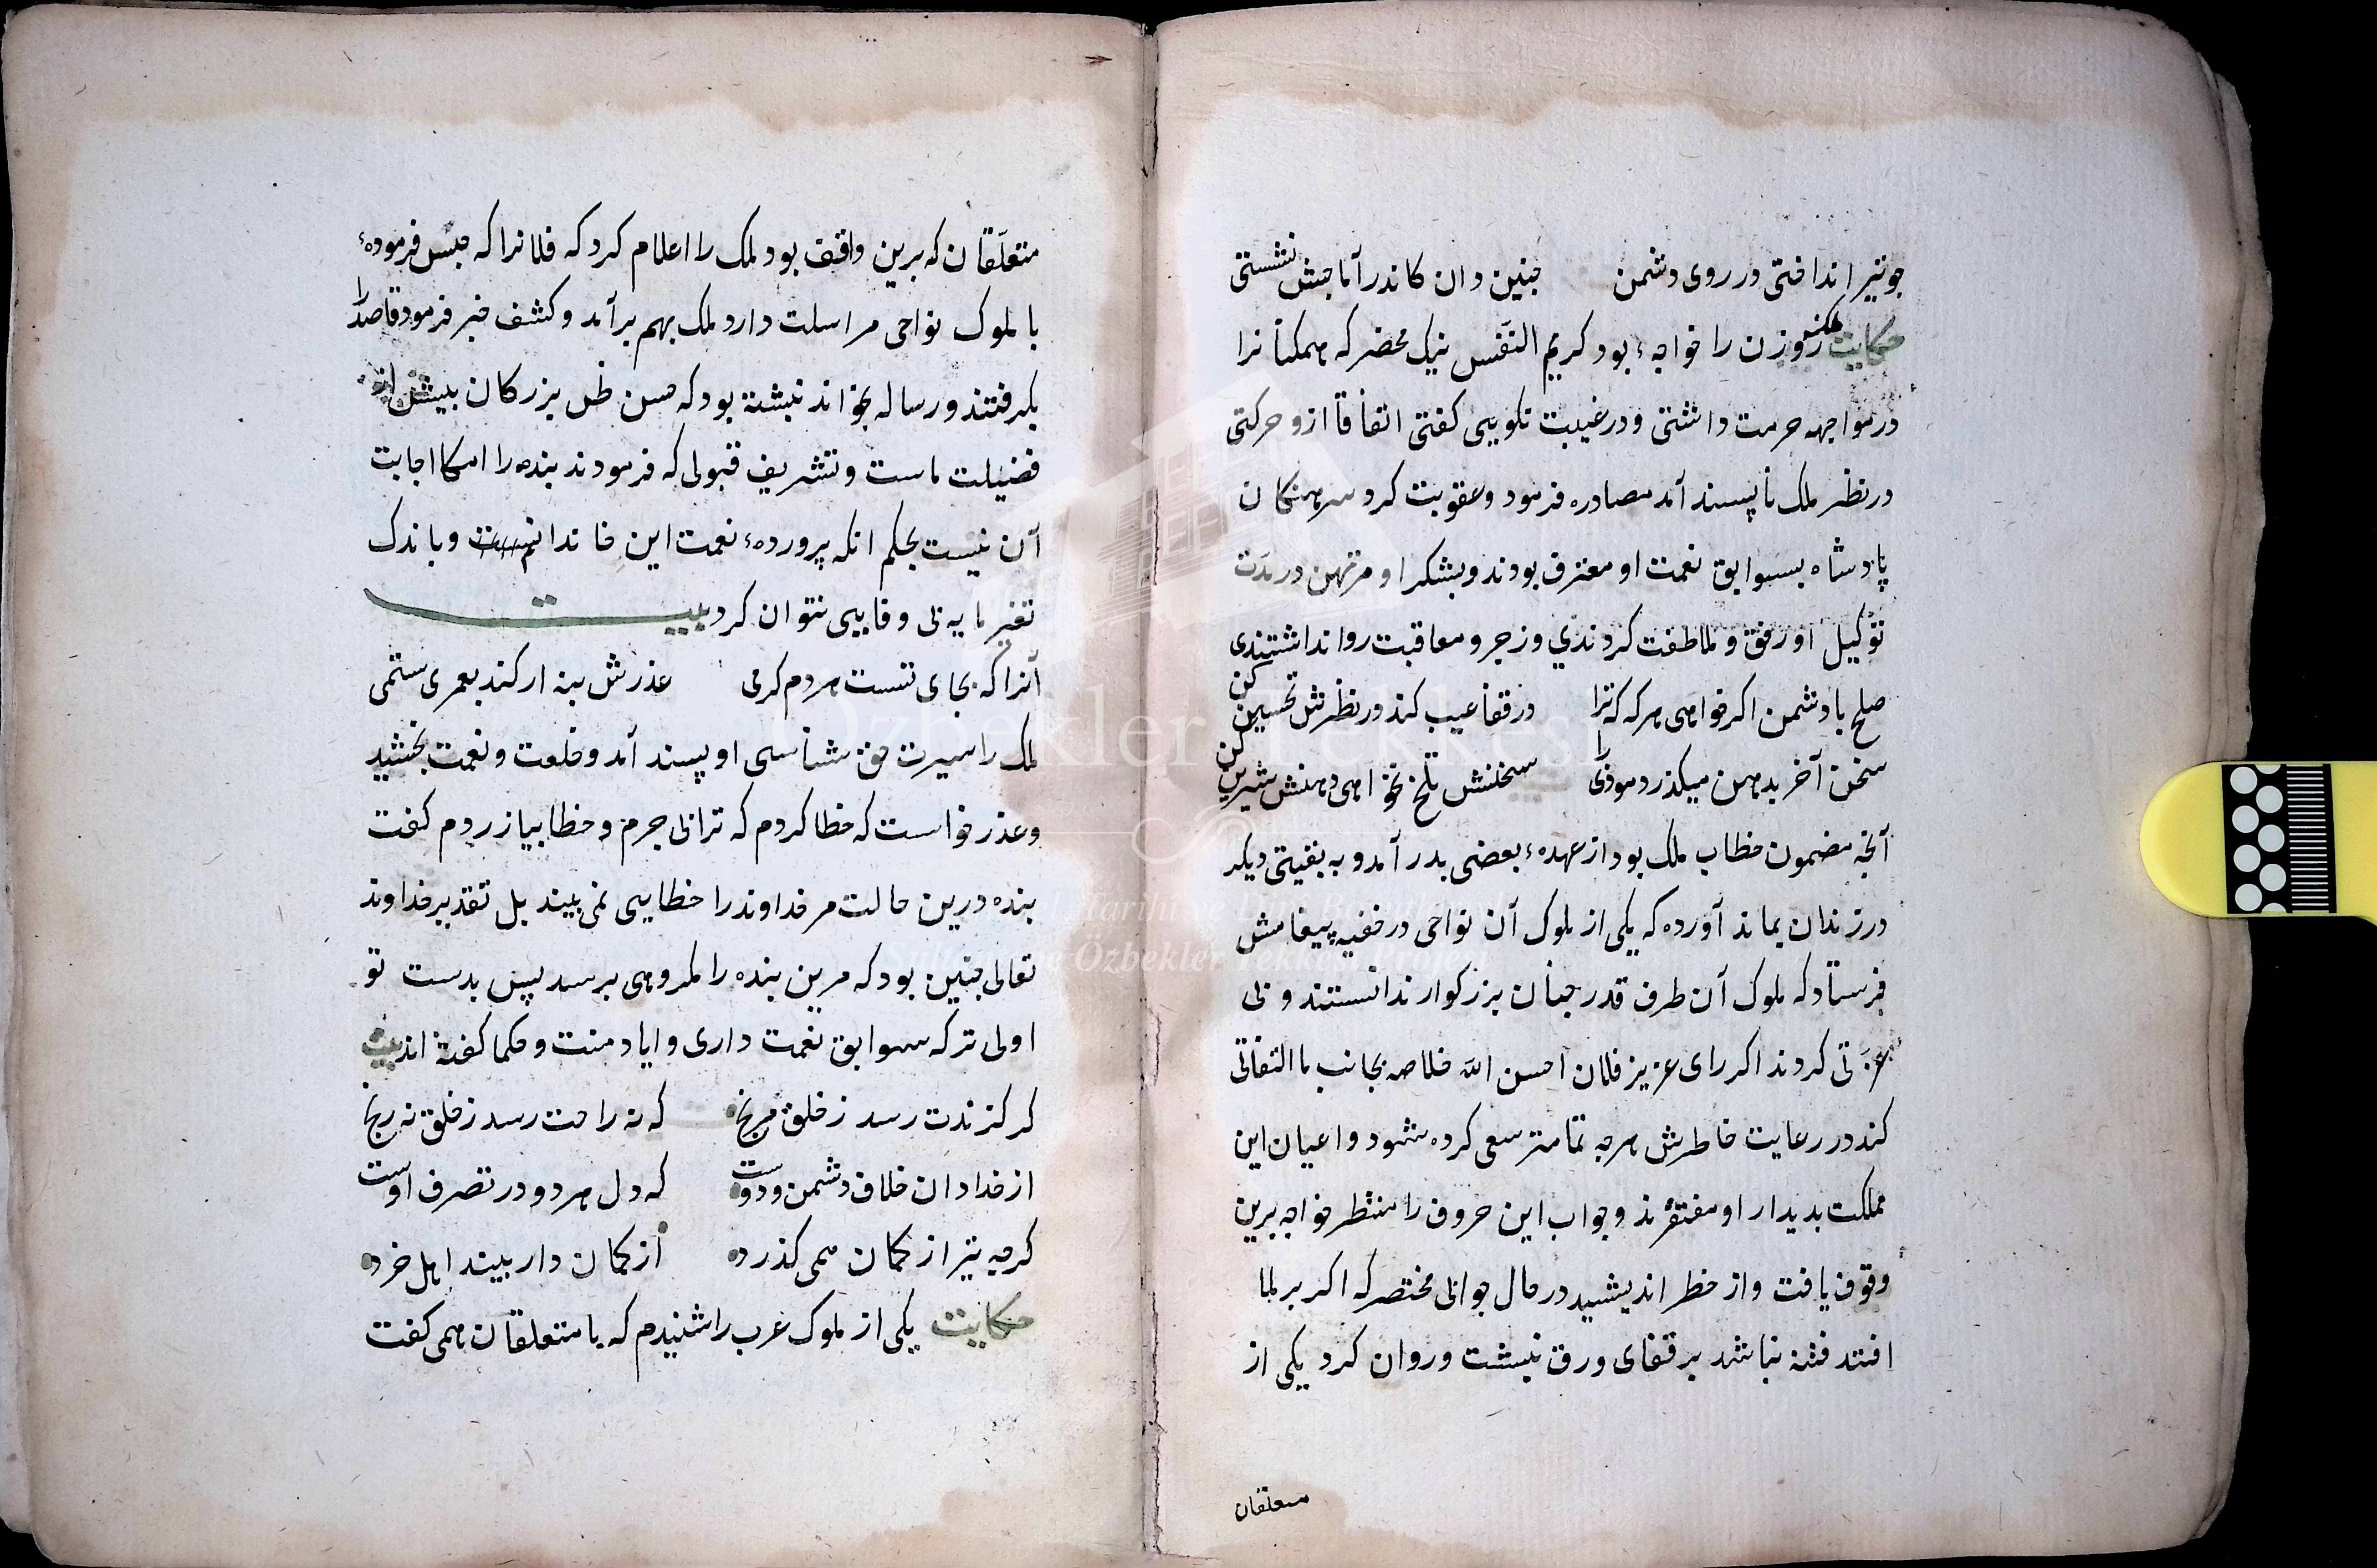 جو تیر انداختی در روی دشمن جنین دان کاندر آماجش نشستی
حکایت ملک زوزن را خواجهٔ بود کریم النفس نیک محضر که همکنانرا
در مواجهه حرمت داشتی و در غیبت نکویی کفتی اتفاقا ازو حرکتی
در نظر ملک ناپسند آمد مصادره فرمود و عقوبت کرد سرهنکان
پادشاه بسوابق نعمت او معترف بودند و بشکر او مرتهن در مدت
توکیل او رفق و ملاطفت کردندی و زجر و معاقبت روا نداشتندی
صلح با دشمن اکر خواهی هرکه که ترا در قفا عیب کند در نظرش تحسین کن
سخن آخر بدهن میکذرد موذی را سخنش تلخ نخواهی دهنش شیرین کن
آنچه مضمون خطاب ملک بود از عهدهٔ بعضی بدر آمد و به بقیتی دیکر
در زندان بماند آورده که یکی از ملوک آن نواحی در خفیه پیغامش
فرستاد که ملوک آن طرف قدر جنان بزرکوار ندانستند و بی
عزتی کردند اکر رای عزیز فلان احسن الله خلاصه بجانب ما التفاتی
کند در رعایت خاطرش هرچه تمامتر سعی کرده شود و اعیان این
مملکت بدیدار او مفتقرند و جواب این حروف را منتظر خواجه برین
وقوف یافت و از خطر اندیشید در حال جوابی مختصر که اکر بر ملا
افتد فتنه نباشد بر قفای ورق نبشت و روان کرد یکی از
متعلقان
متعلقان که برین واقف بود ملک را اعلام کرد که فلانرا که حبس فرمودهٔ
با ملوک نواحی مراسلت دارد ملک بهم برآمد و کشف خبر فرمود قاصد را
بکرفتند و رساله بخواند نبشته بود که حسن ظن بزرکان بیش از
فضیلت ماست و تشریف قبولی که فرمودند بنده را امکا اجابت
آن نیست بحکم انکه پروردهٔ نعمت این خاندانم و باندک
تغیر مایه بی وفایی نتوان کرد بیت
آنرا که بجای تست هردم کرمی عذرش بنه ار کند بعمری ستمی
ملک را سیرت حق شناسی او پسند آمد و خلعت و نعمت بخشید
و عذر خواست که خطا کردم که ترا بی جرم و خطا بیازردم کفت
بنده درین حالت مر خداوند را خطایی نمی بیند بل تقدیر خداوند
تعالی جنین بود که مرین بنده را مکروهی برسد پس بدست تو
اولی تر که سوابق نعمت داری و ایاد منت و حکما کفته اند بیت
کر کزندت رسد ز خلق مرنج که نه راحت رسد ز خلق نه رنج
از خدا دان خلاف دشمن و دوست که دل هر دو در تصرف اوست
کرچه تیر از کمان همی کذرد از کمان دار بیند اهل خرد
حکایت یکی از ملوک عرب را شنیدم که با متعلقان همی کفت